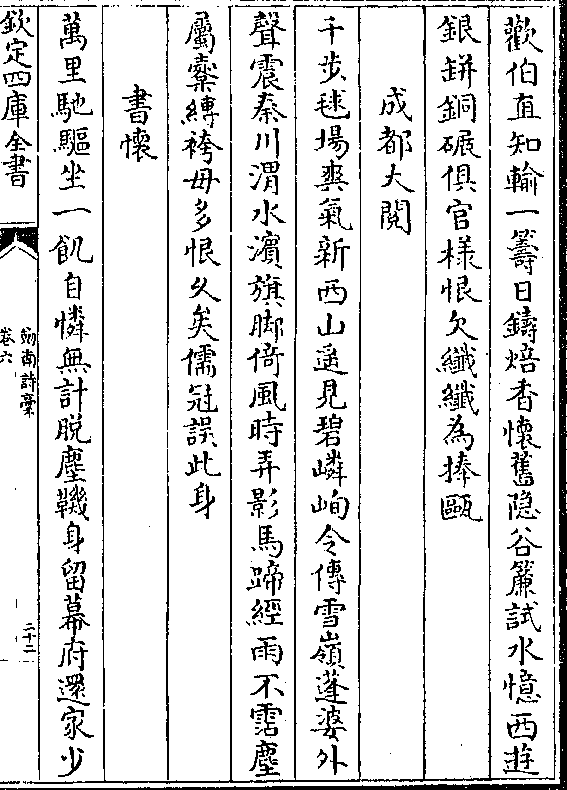 歡伯直知輸一籌日鑄焙香懷舊隱谷簾試水憶西遊
銀缾銅碾俱官様恨欠纖纖為捧甌
成都大閱
千步毬場爽氣新西山遥見碧嶙峋令傳雪嶺蓬婆外
聲震秦川渭水濵旗脚倚風時弄影馬蹄經雨不霑塵
屬櫜縛袴毋多恨久矣儒冠誤此身
書懷
萬里馳驅坐一飢自憐無計脫塵鞿身留幕府還家少
欽定四庫全書
劒南詩稾
卷六
二十二